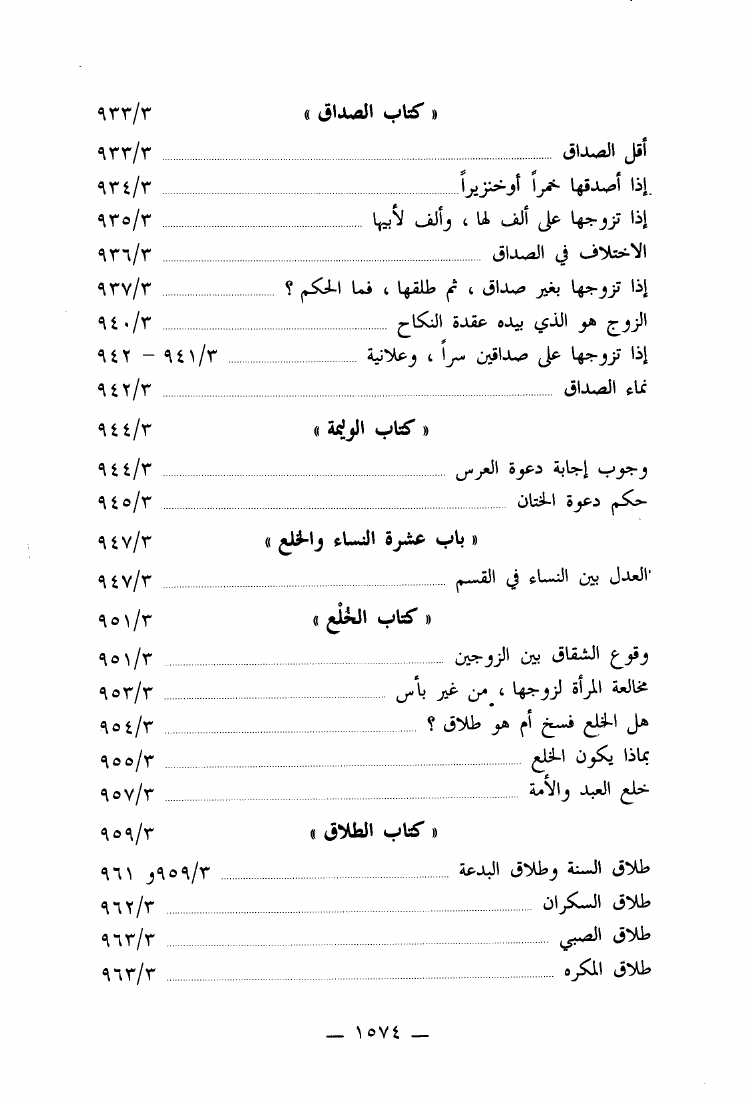 « كتاب الصداق » ٩٣٣/٣
أقل الصداق ٩٣٣/٣
إذا أصدقها خمراً أوخنزيراً ٩٣٤/٣
إذا تزوجها على ألف لها ، وألف لأبيها ٩٣٥/٣
الاختلاف في الصداق ٩٣٦/٣
إذا تزوجها بغير صداق ، ثم طلقها ، فما الحكم ؟ ٩٣٧/٣
الزوج هو الذي بيده عقدة النكاح ٩٤٠/٣
إذا تزوجها على صداقين سراً ، وعلانية ٩٤١/٣ – ٩٤٢
نماء الصداق ٩٤٢/٣
« كتاب الوليمة » ٩٤٤/٣
وجوب إجابة دعوة العرس ٩٤٤/٣
حكم دعوة الختان ٩٤٥/٣
« باب عشرة النساء والخلع » ٩٤٧/٣
العدل بين النساء في القسم ٩٤٧/٣
« كتاب الخُلْع » ٩٥١/٣
وقوع الشقاق بين الزوجين ٩٥١/٣
مخالعة المرأة لزوجها ، من غير بأس ٩٥٣/٣
هل الخلع فسخ أم هو طلاق ؟ ٩٥٤/٣
بماذا يكون الخلع ٩٥٥/٣
خلع العبد والأمة ٩٥٧/٣
« كتاب الطلاق » ٩٥٩/٣
طلاق السنة وطلاق البدعة ٩٥٩/٣و ٩٦١
طلاق السكران ٩٦٢/٣
طلاق الصبي ٩٦٣/٣
طلاق المكره ٩٦٣/٣
— ١٥٧٤ —